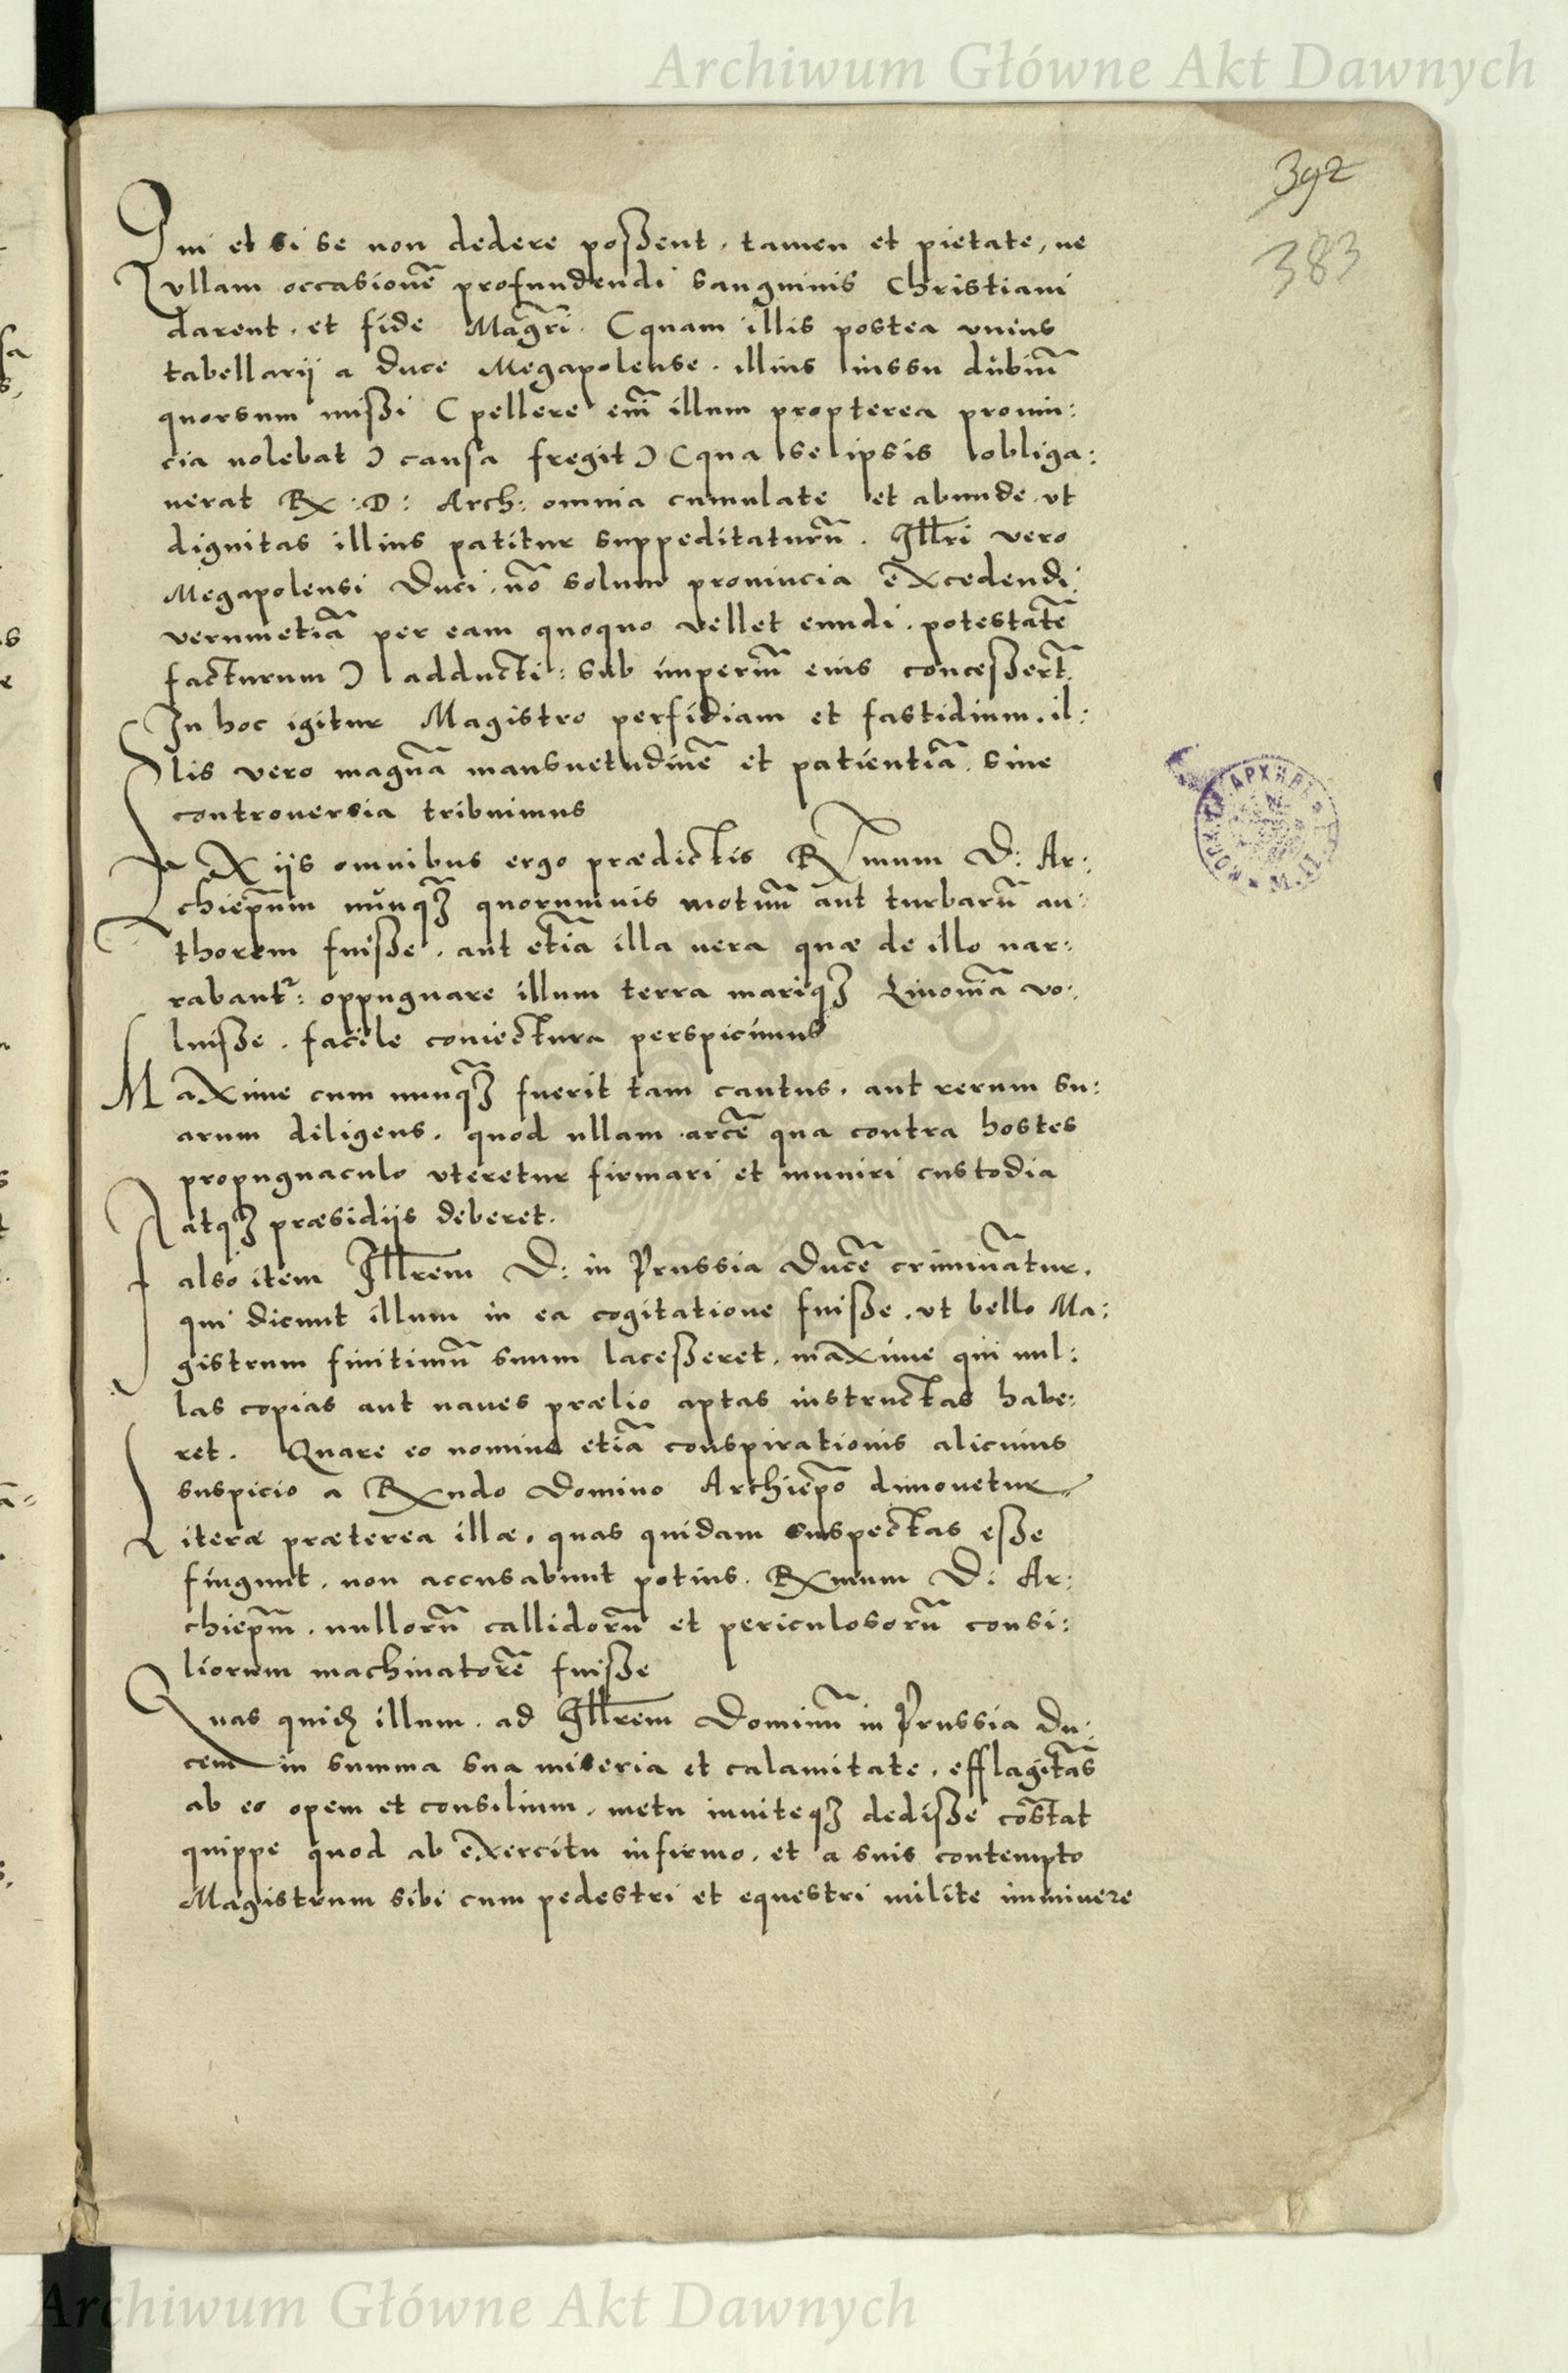 Archiwum Główne Akt Dawnych
392
383
Qui et si se non dedere poßent, tamen et pietate, ne
vllam occasionē profundendi sanguinis Christiani
darent, et fide Magr̄i. (quam illis postea vnius
tabellarij a Duce Megapolense, illius iussu dubiū
quorsum mißi (pellere em̄ illum propterea prouin:
cia nolebat) causa fregit) (qua se ipsis obliga:
uerat Rx. D: Arch: omnia cumulate et abunde, vt
dignitas illius patitur suppeditaturū. Illr̄i vero
Megapolensi Duci, nō solum prouincia excedendi,
verumetiā per eam quoquo vellet eundi, potestatē
facturum) adducti: sub imperiū eius conceßer̄t.
In hoc igitur Magistro perfidiam et fastidium, il:
lis vero magnā mansuetudinē et patientiā, sine
controuersia tribuimus
Ex iis omnibus ergo prædictis Rxmum D: Ar:
chiep̄um nunq̄ȝ quorumuis motuū aut turbarū au:
thorem fuiße, aut etiā illa uera quæ de illo nar:
rabantr: oppugnare illum terra mariqȝ Liuoniā vo:
luiße, facile coniectura perspicimus
Maxime cum nunq̄ȝ fuerit tam cautus, aut rerum su:
arum diligens, quod ullam arcē qua contra hostes
propugnaculo vteretur firmari et muniri custodia
atqȝ præsidijs deberet.
Falso item Illr̄em D: in Prussia Ducē criminātur,
qui dicunt illum in ea cogitatione fuiße, vt bello Ma:
gistrum finitimū suum laceßeret, maxime qui nul:
las copias aut naues prælio aptas instructas habe:
ret. Quare eo nomine etiā conspirationis alicuius
suspicio a Rxndo Domino Archiep̄o dimouetur
Literæ præterea illæ, quas quidam suspectas eße
fingunt, non accusabunt potius, Rxmum D: Ar:
chiep̄m, nullorū callidorū et periculosorū consi:
liorum machinatorē fuiße
Quas quidē illum, ad Illr̄em Dominū in Prussia Du:
cem in summa sua miseria et calamitate, efflagitās
ab eo opem et consilium, metu inuiteqȝ dediße cōstat
quippe quod ab exercitu infirmo, et a suis contempto
Magistrum sibi cum pedestri et equestri milite imminere
Archiwum Główne Akt Dawnych